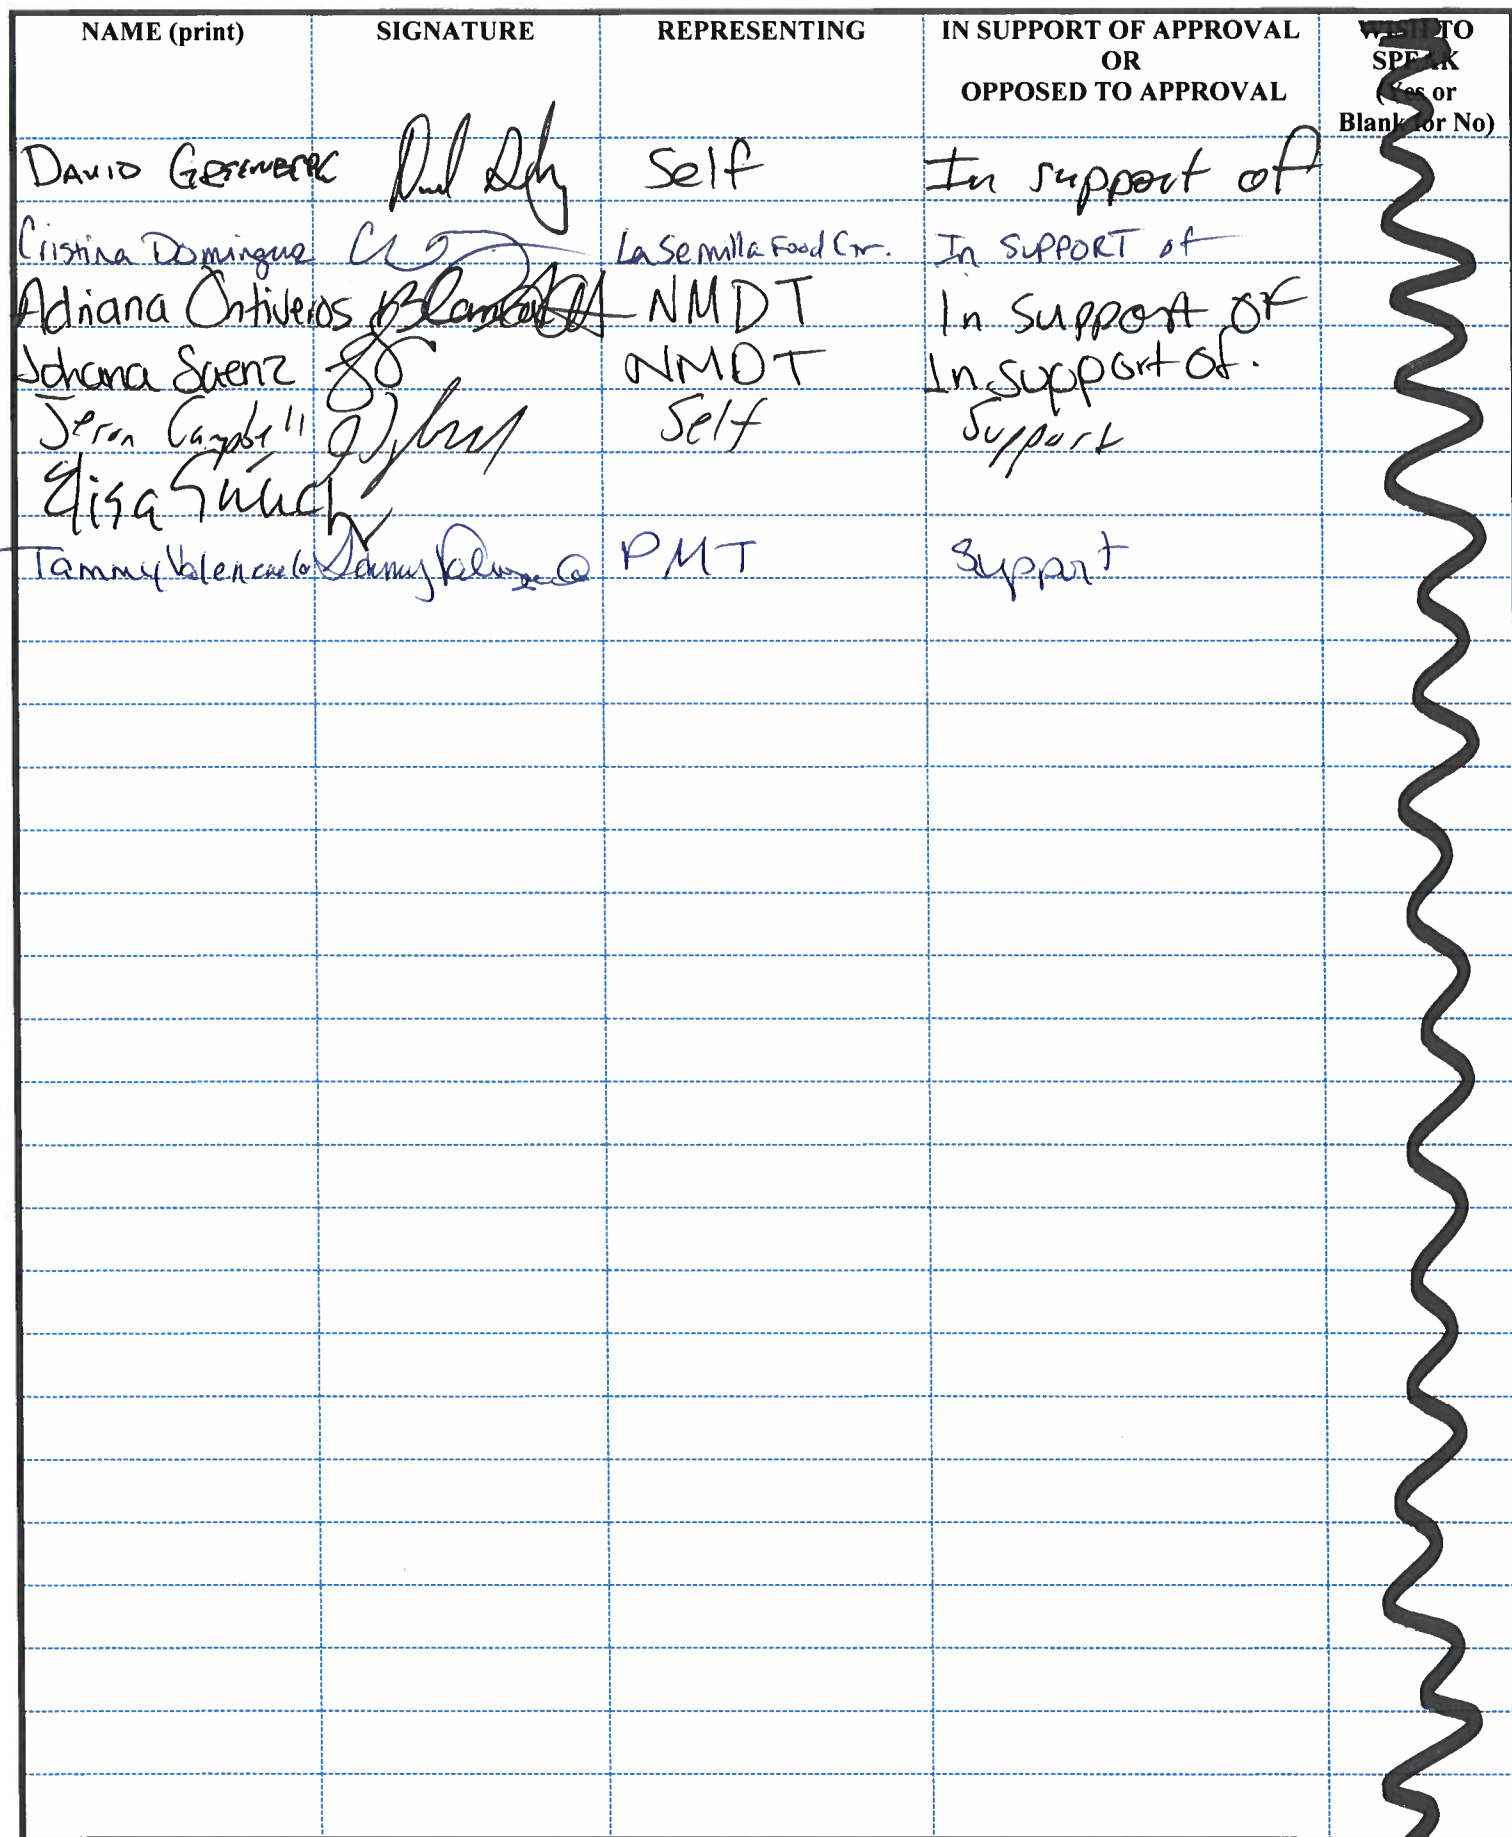 NAME (print) SIGNATURE REPRESENTING IN SUPPORT OF APPROVAL WISH TO
OR SPEAK
OPPOSED TO APPROVAL (Yes or
Blank for No)
DAVID GREENBERG Self In support of
Cristina Dominguez La Semilla Food Ctr. In SUPPORT of
Adriana Ontiveros NMDT In Support Of
Johana Saenz NMDT In support of.
Jeron Campbell Self Support
Elisa
Tammy Valenzuela Tammy Valenzuela PMT Support